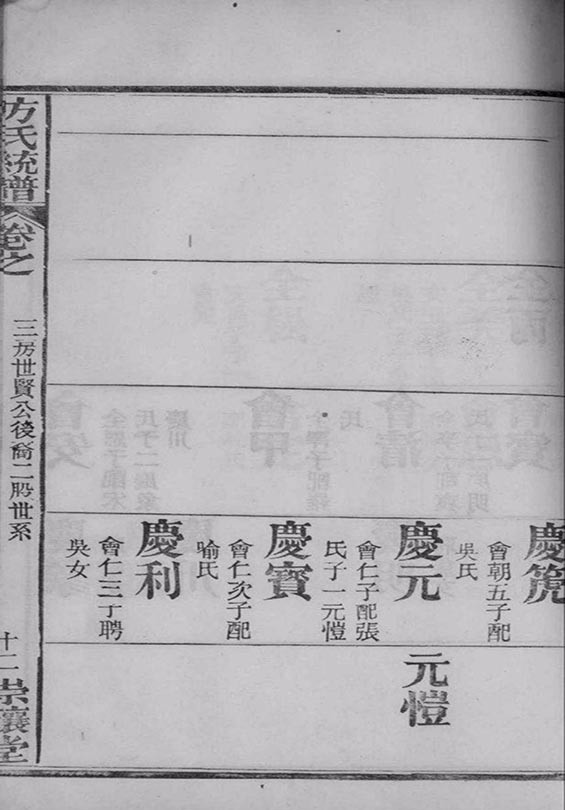 慶箎
會朝五子配
吳氏
慶元
會仁子配張
氏子一元愷
慶寳
會仁次子配
喻氏
慶利
會仁三丁聘
吳女
元愷
方氏統譜
卷之
三房世賢公後裔二股世系
十二
崇讓堂